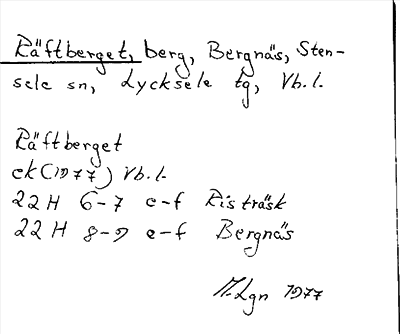 Räftberget, berg, Bergnäs, Sten-
sele sn, Lycksele tg, Vb.l.
Räftberget
ek (1977) Vb.l.
22 H 6-7 e-f Risträsk
22 H 8-9 e-f Bergnäs
M.Lgn 1977